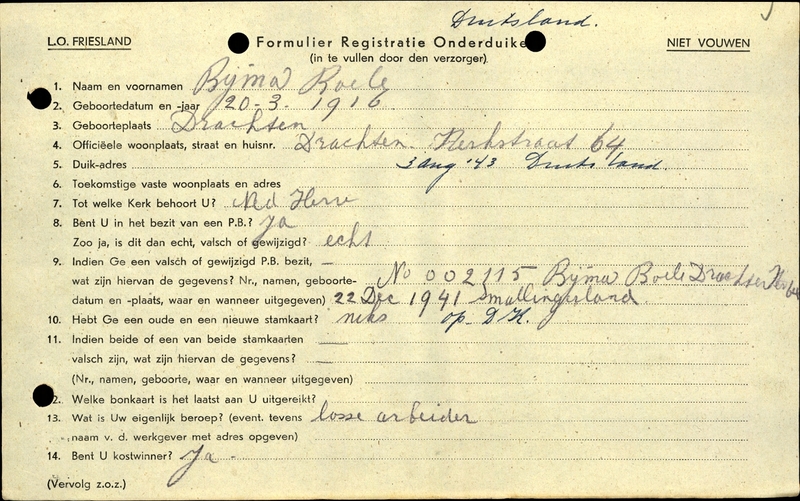 Duitsland.
L.O. FRIESLAND
Formulier Registratie Onderduike
NIET VOUWEN
(in te vullen door den verzorger)
1. Naam en voornamen Bijma Roele
2. Geboortedatum en -jaar 20-3. 1916
3. Geboorteplaats Drachten
4. Officiëele woonplaats, straat en huisnr. Drachten Kerkstraat 64
5. Duik-adres 3 aug '43 Duitsland.
6. Toekomstige vaste woonplaats en adres
7. Tot welke Kerk behoort U? Ned Herv
8. Bent U in het bezit van een P.B.? Ja
Zoo ja, is dit dan echt, valsch of gewijzigd? echt
9. Indien Ge een valsch of gewijzigd P.B. bezit, —
wat zijn hiervan de gegevens? Nr., namen, geboorte- No 002115 Bijma Roele Drachten
datum en -plaats, waar en wanneer uitgegeven) 22 Dec 1941 Smallingerland
10. Hebt Ge een oude en een nieuwe stamkaart? niks op D.K.
11. Indien beide of een van beide stamkaarten —
valsch zijn, wat zijn hiervan de gegevens? —
(Nr., namen, geboorte, waar en wanneer uitgegeven)
2. Welke bonkaart is het laatst aan U uitgereikt?
13. Wat is Uw eigenlijk beroep? (event. tevens losse arbeider
naam v. d. werkgever met adres opgeven)
14. Bent U kostwinner? Ja -
(Vervolg z.o.z.)